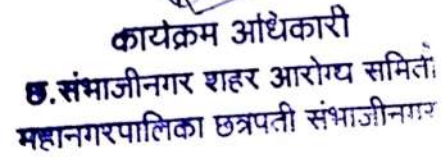 कार्यक्रम अधिकारी
छ.संभाजीनगर शहर आरोग्य समिती
महानगरपालिका छत्रपती संभाजीनगर